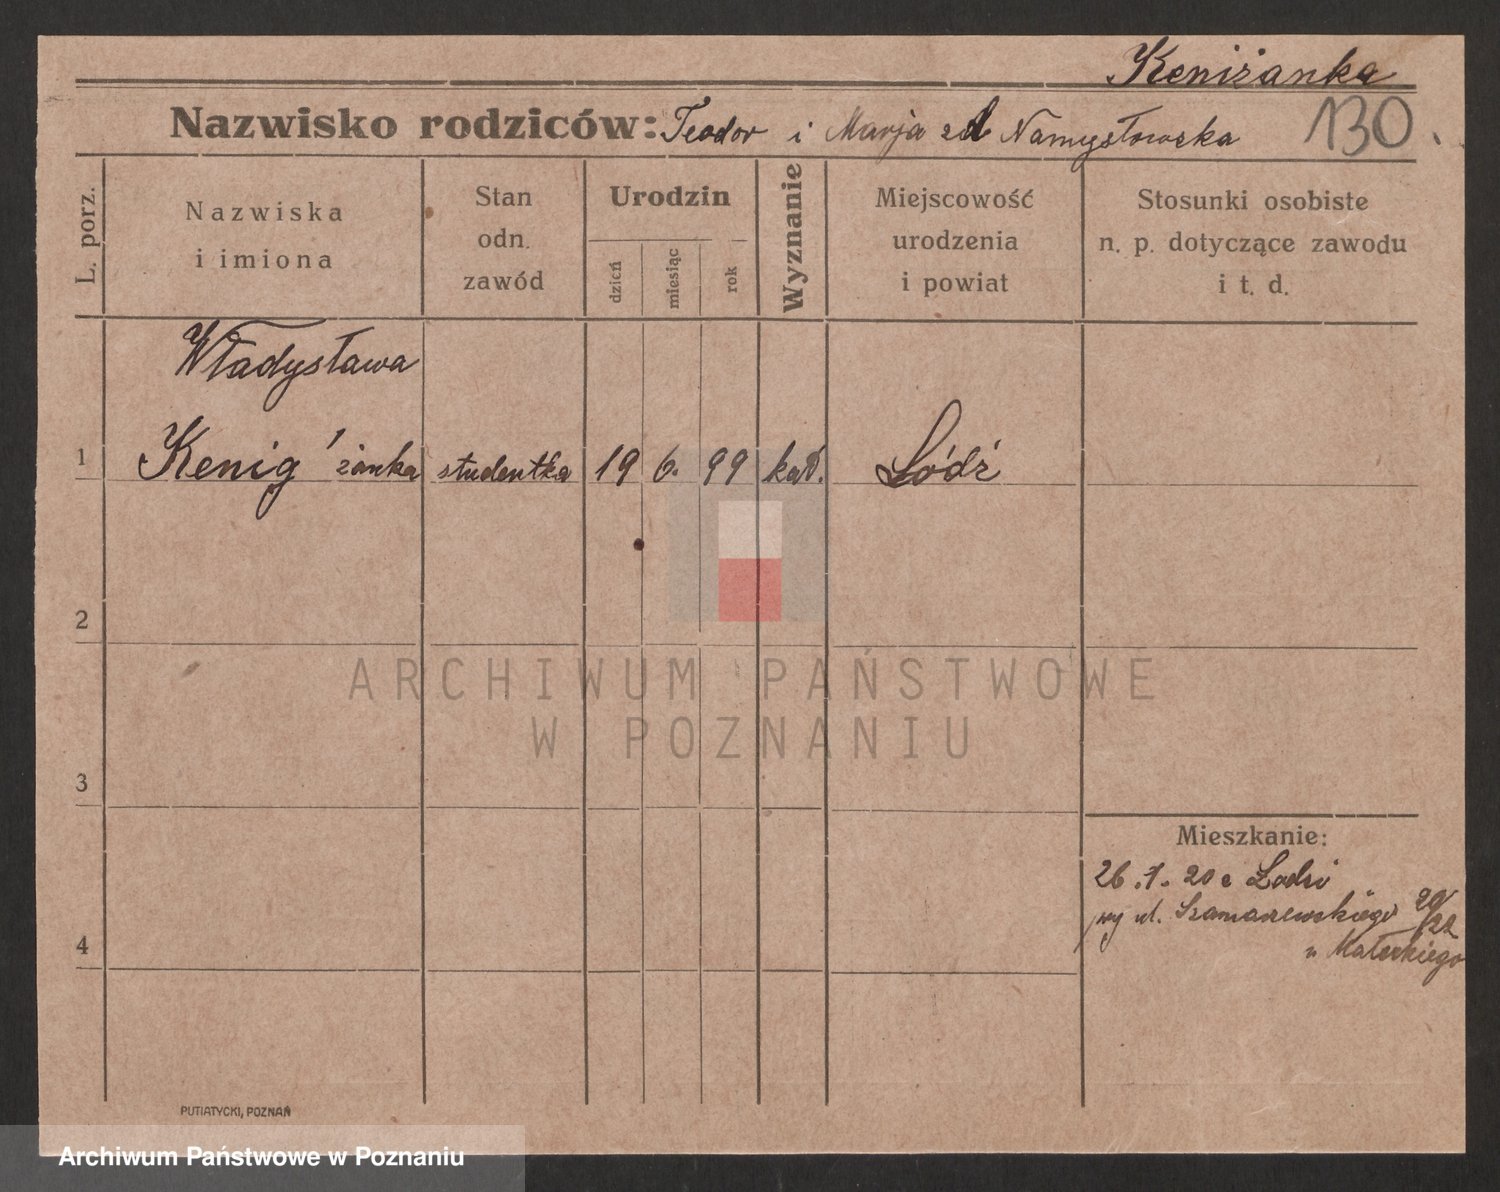 Keniżanka
Nazwisko rodziców: Teodor i Marja zd Namysłowska
130.
L. porz.
Nazwiska
i imiona
Stan
odn.
zawód
Urodzin
dzień
miesiąc
rok
Wyznanie
Miejscowość
urodzenia
i powiat
Stosunki osobiste
n. p. dotyczące zawodu
i t. d.
Władysława
1 Kenig'żanka studentka 19 6. 99 kat. Łódź
2
ARCHIWUM PAŃSTWOWE
W POZNANIU
3
Mieszkanie:
26.1.20 z Łodzi
ul. Szamarzewskiego 20/22
4
u Małeckiego
PUTIATYCKI, POZNAŃ
Archiwum Państwowe w Poznaniu